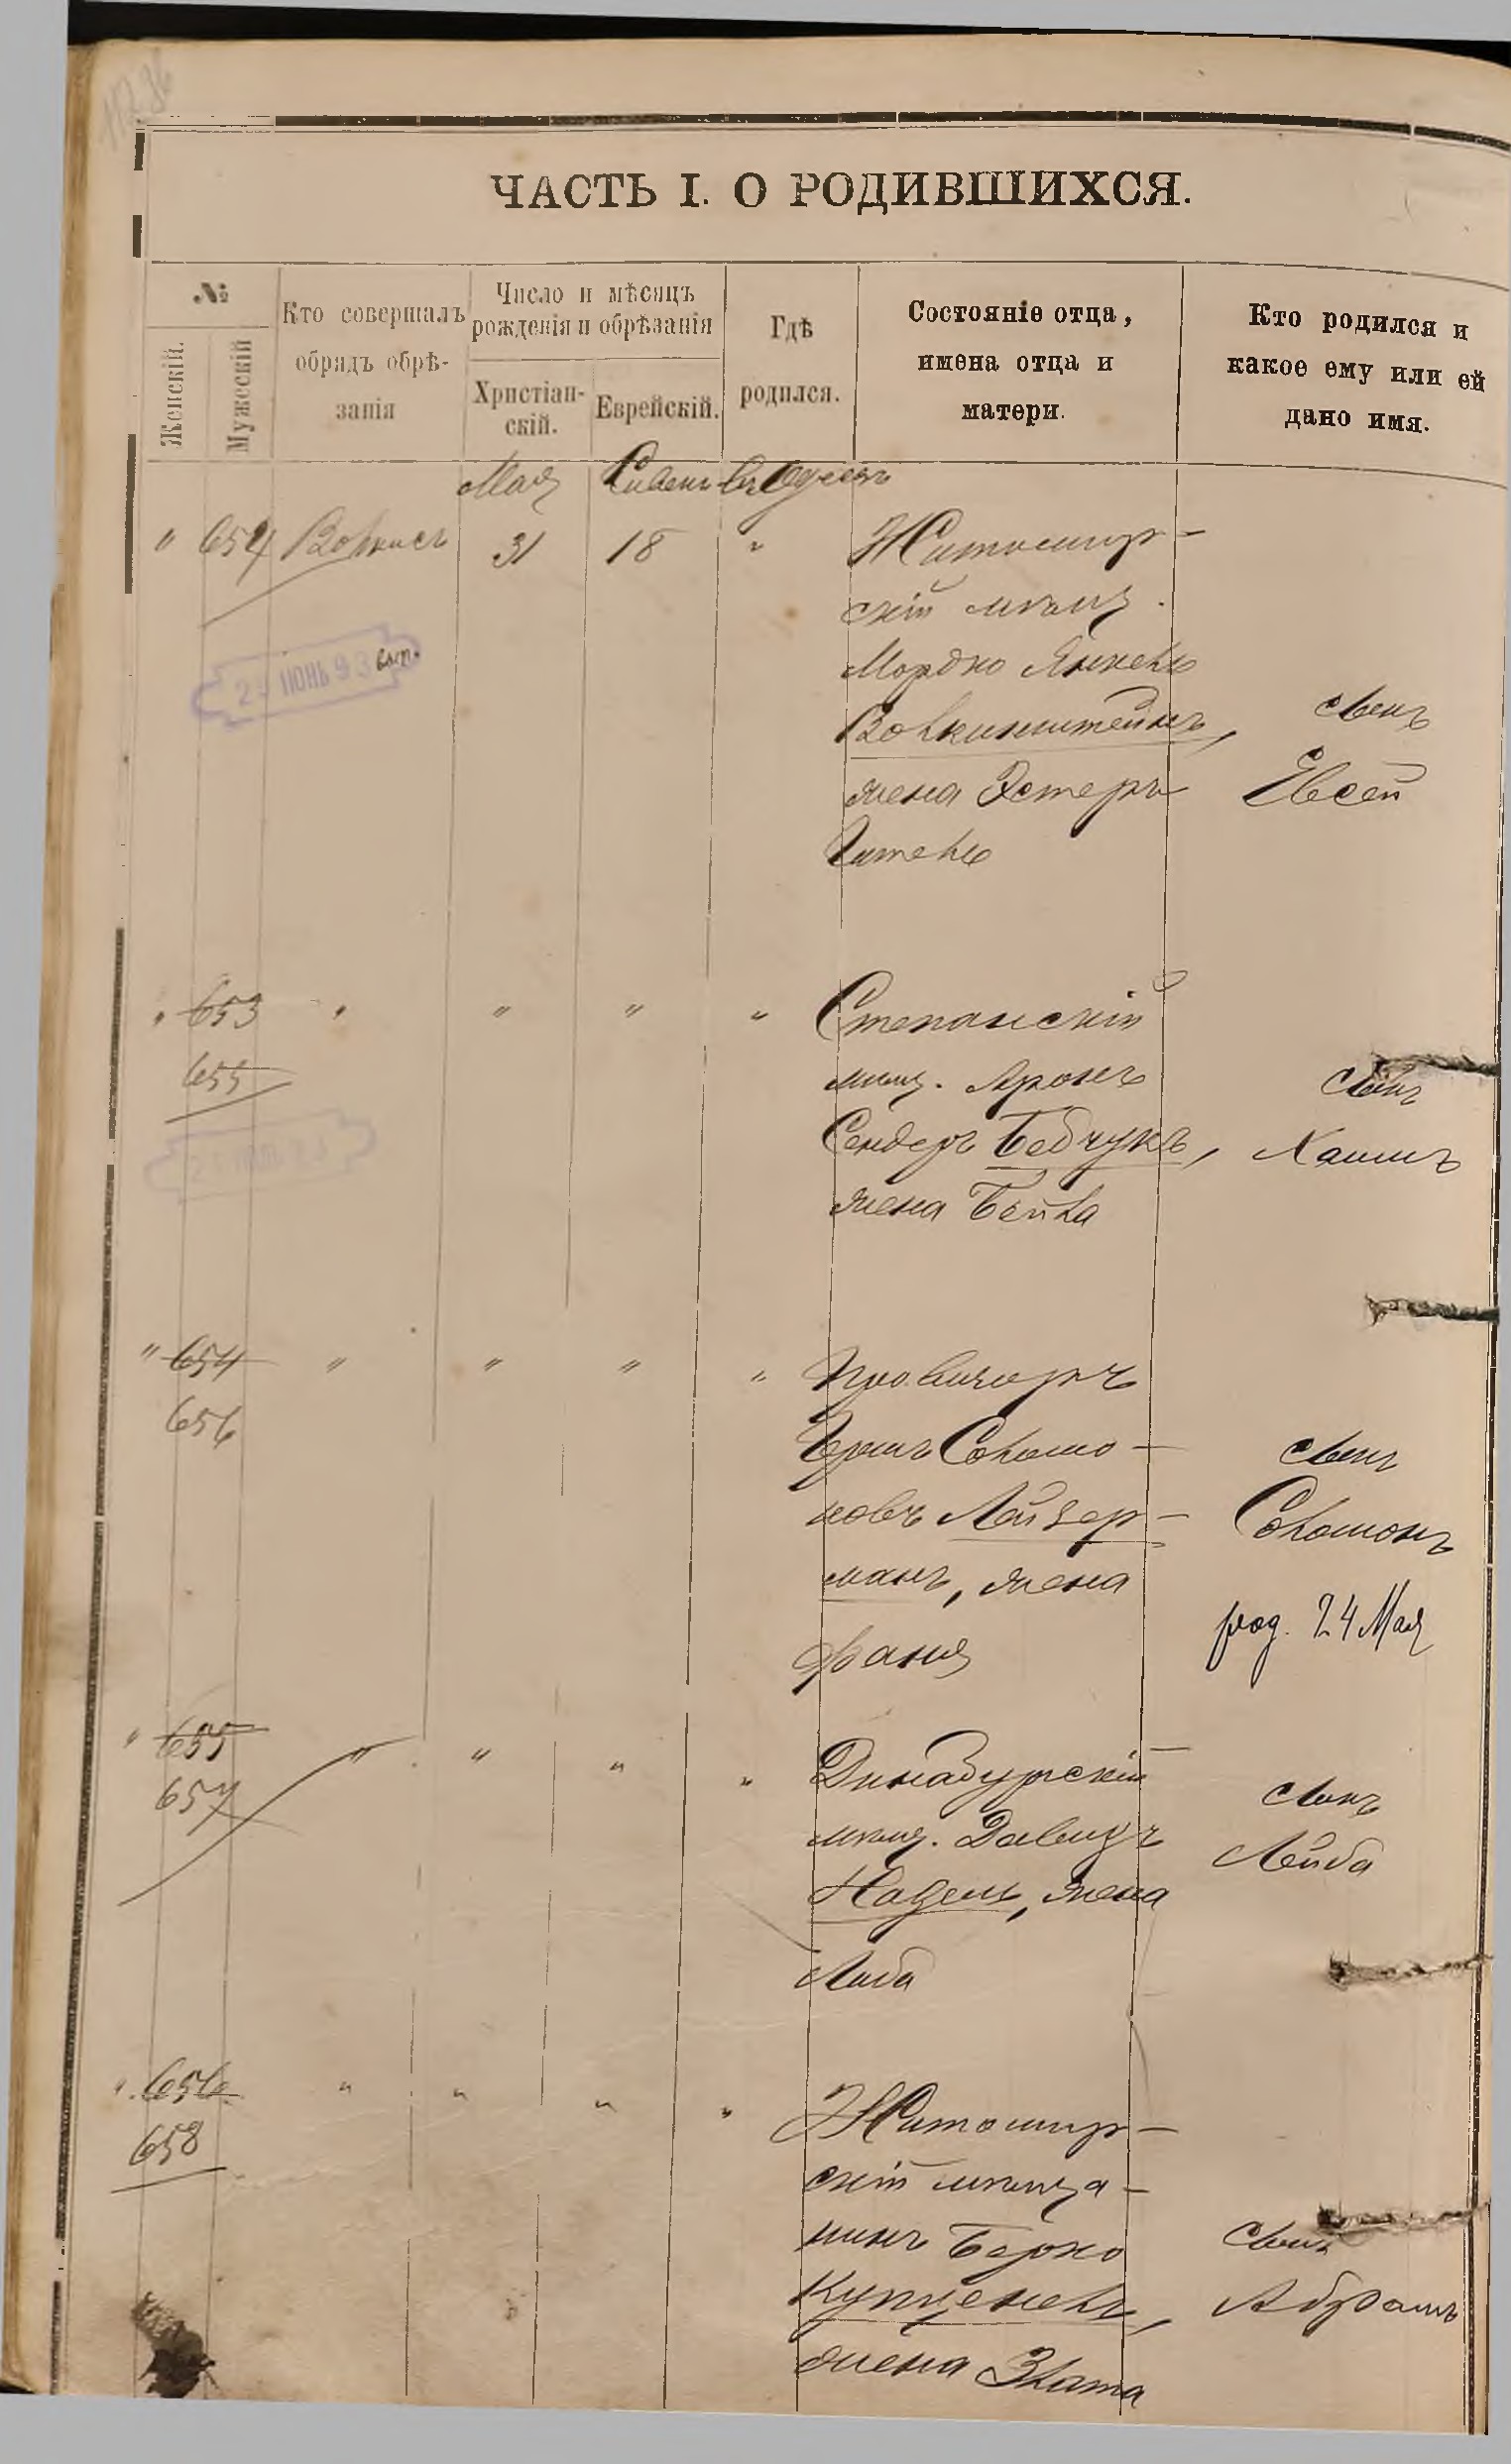 ЧАСТЬ I. О РОДИВШИХСЯ.
№
Женскій.
Мужескій
Кто совершалъ
обрядъ обрѣ-
занія
Число и мѣсяцъ
рожденія и обрѣзанія
Христіан-
скій.
Еврейскій.
Гдѣ
родился.
Состояніе отца,
имена отца и
матери.
Кто родился и
какое ему или ей
дано имя.
Мая Сивенъ въ Одессѣ
" 654 31 18 " Житомир-
скій мѣщ.
Мордко Янкель
Волкинштейнъ,
жена Эстеръ
Гитель
сынъ
Евсей
ИЮНЬ 93
" 653 " " " "
655
Степанскій
мѣщ. Аронъ
Сендеръ Бебчукъ,
жена Бейла
сынъ
Хаимъ
" 654 " " " "
656
Провизоръ
Гершъ Соломо-
новъ Лейзер-
манъ, жена
Фаня
сынъ
Соломонъ
род. 24 Мая
" 655 " " " "
657
Динабургскій
мѣщ. Давидъ
Надель, жена
Либа
сынъ
Лейба
" 656 " " " "
658
Житомир-
скій мѣща-
нинъ Берко
Купченель,
жена Злата
сынъ
Абрамъ